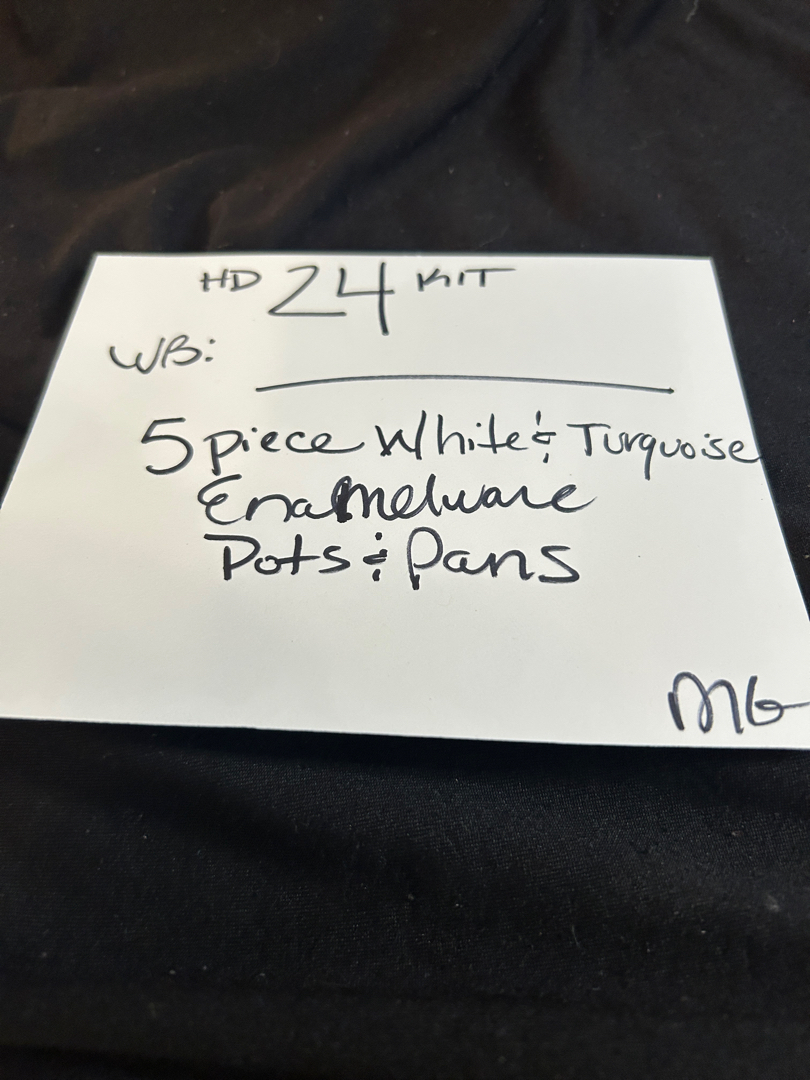 HD 24 KIT
WB:
5 piece White & Turquoise
Enamelware
Pots & Pans
MG